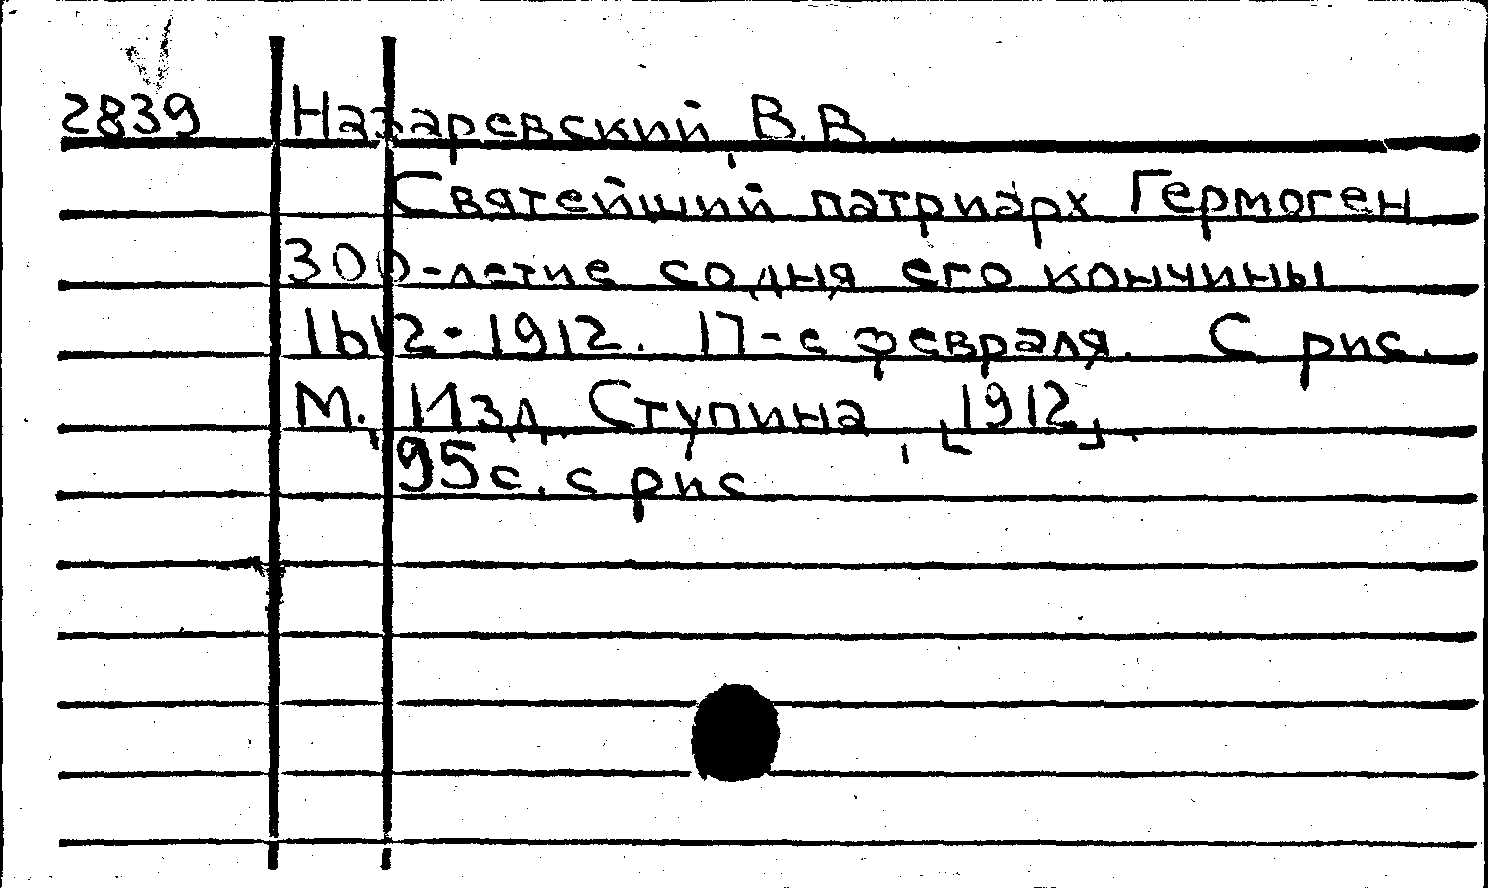 2839 Назаревский, В.В.
Святейший патриарх Гермоген
300-летие со дня его кончины
1612-1912. 17-е февраля. С рис.
М., Изд. Ступина, [1912].
95 с. с рис